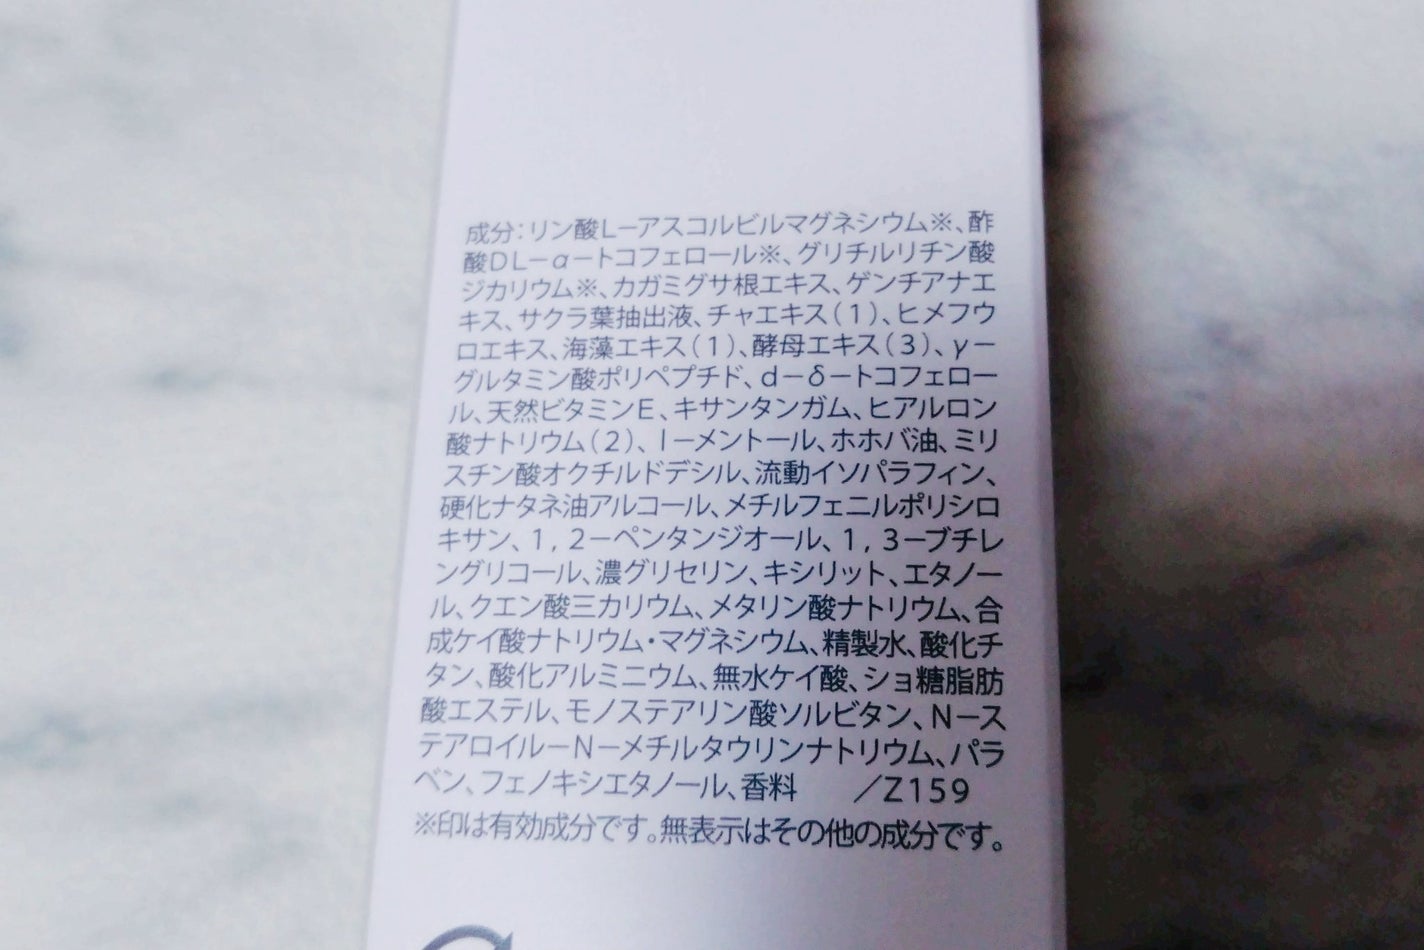 成分：リン酸L－アスコルビルマグネシウム※、酢
酸DL－α－トコフェロール※、グリチルリチン酸
ジカリウム※、カガミグサ根エキス、ゲンチアナエ
キス、サクラ葉抽出液、チャエキス（1）、ヒメフウ
ロエキス、海藻エキス（1）、酵母エキス（3）、γ－
グルタミン酸ポリペプチド、d－δ－トコフェロー
ル、天然ビタミンE、キサンタンガム、ヒアルロン
酸ナトリウム（2）、l－メントール、ホホバ油、ミリ
スチン酸オクチルドデシル、流動イソパラフィン、
硬化ナタネ油アルコール、メチルフェニルポリシロ
キサン、1，2－ペンタンジオール、1，3－ブチレ
ングリコール、濃グリセリン、キシリット、エタノー
ル、クエン酸三カリウム、メタリン酸ナトリウム、合
成ケイ酸ナトリウム・マグネシウム、精製水、酸化チ
タン、酸化アルミニウム、無水ケイ酸、ショ糖脂肪
酸エステル、モノステアリン酸ソルビタン、N－ス
テアロイル－N－メチルタウリンナトリウム、パラ
ベン、フェノキシエタノール、香料　／Z159
※印は有効成分です。無表示はその他の成分です。